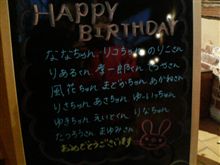 HAPPY
BIRTHDAY
ななちゃん リコちゃん のりこさん
りあるくん 孝一郎くん
風花ちゃん まどかちゃん あかねさん
りさちゃん あささん ゆいっちゃん
ゆきちゃん えいとくん りなちゃん
たつろうさん まゆみさん
おめでとうございます